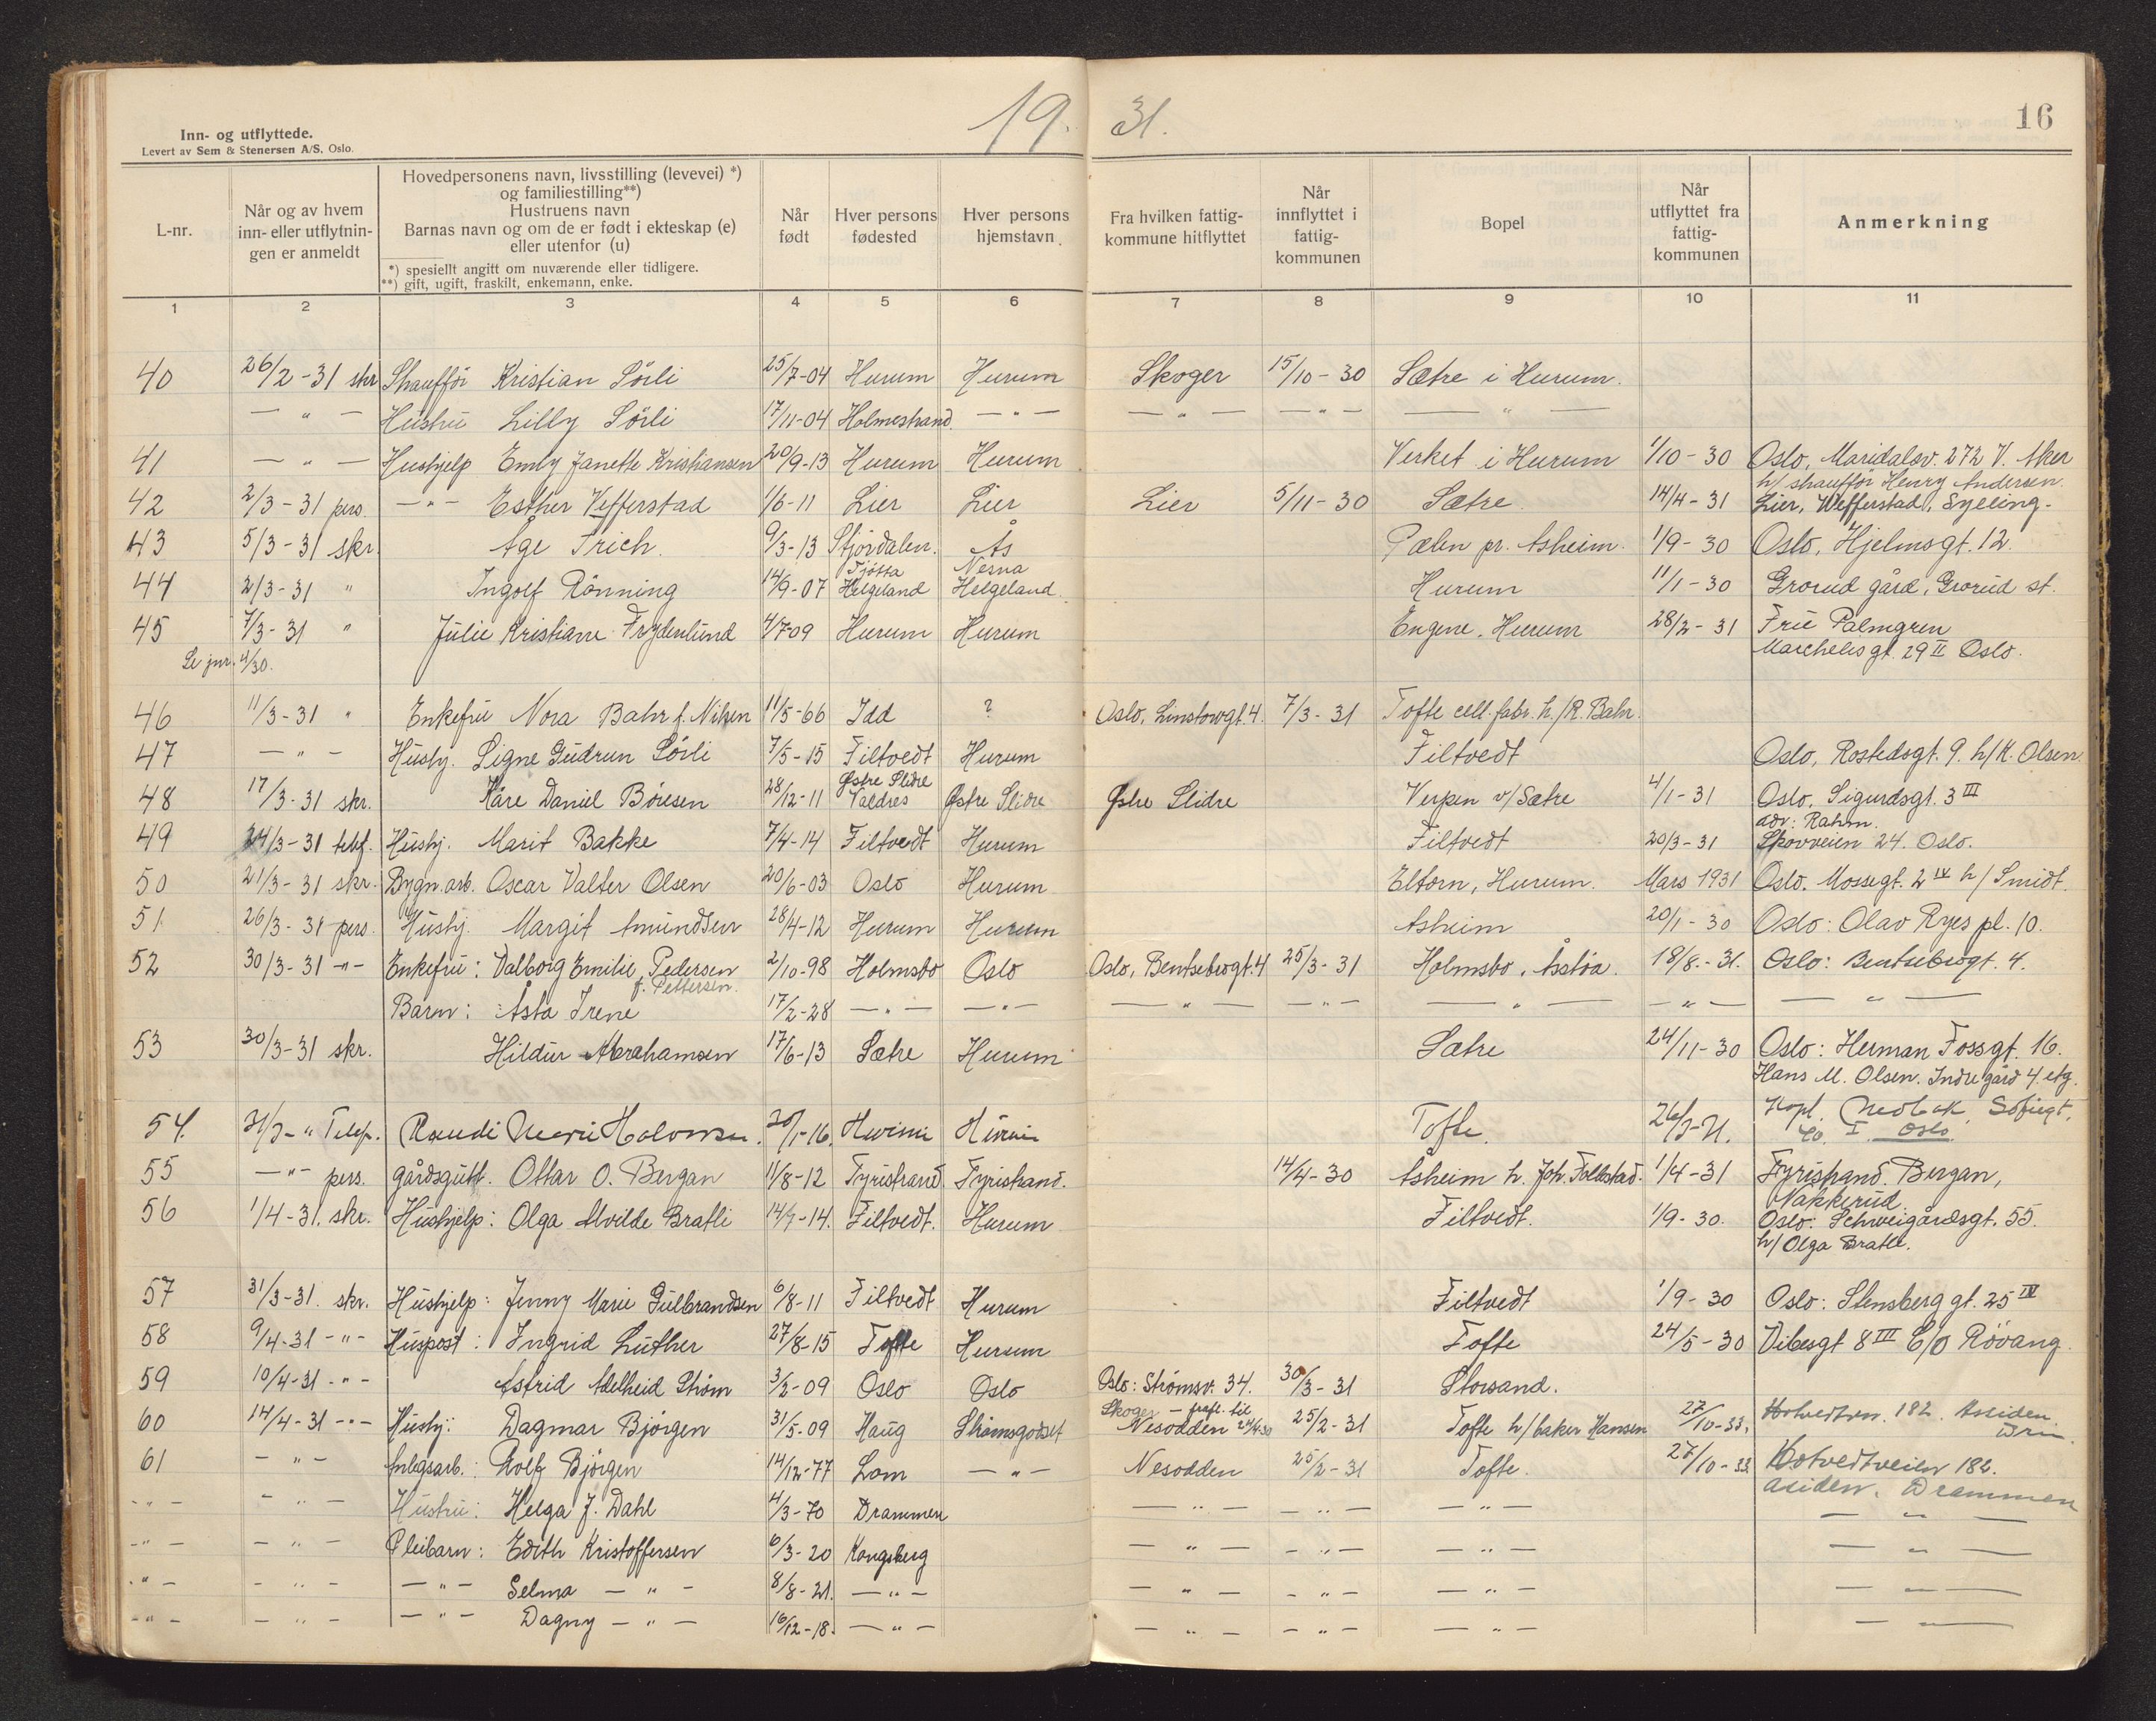 19. 31.
16
Inn- og utflyttede.
Levert av Sem & Stenersen A/S, Oslo.
L-nr.
Når og av hvem inn- eller utflytnin- gen er anmeldt
Hovedpersonens navn, livsstilling (levevei) *)
og familiestilling**)
Hustruens navn
Barnas navn og om de er født i ekteskap (e)
eller utenfor (u)
*) spesiellt angitt om nuværende eller tidligere.
**) gift, ugift, fraskilt, enkemann, enke.
Når født
Hver persons fødested
Hver persons hjemstavn
Fra hvilken fattig- kommune hitflyttet
Når innflyttet i fattig- kommunen
Bopel
Når utflyttet fra fattig- kommunen
Anmerkning
1 2 3 4 5 6 7 8 9 10 11
40 26/2-31 skr Shauffør Kristian Sörli 25/7-04 Hurum Hurum Skoger 15/10-30 Sætre i Hurum.
— " — Hustru Lilly Sörli 17/11-04 Holmestrand — " — — " — — " — — " —
41 — " — Hushjelp Emly Janette Kristiansen 20/9-13 Hurum Hurum Verket i Hurum 1/10-30 Oslo, Maridalsv. 272 V. Aker
h/ shauffør Henry Andersen.
42 2/3-31 pers. — " — Esther Vefferstad 1/6-11 Lier Lier Lier 5/11-30 Sætre 14/4-31 Lier, Wefferstad, Sylling-
43 5/3-31 skr. Åge Trich. 9/3-13 Stjördalen. Ås Pælen pr. Åsheim. 1/9-30 Oslo, Hjelmsgt. 12.
Tjötta Nesna
44 2/3-31 " Ingolf Rönning 14/9-07 Helgeland Helgeland. Hurum 11/1-30 Grorud gård, Grorud st.
45 7/3-31 " Julie Kristiane Frydenlund 4/7-09 Hurum Hurum Engene. Hurum 28/2-31 Frü Palmgren
Se jnr. 4/30. Marchelis gt. 29 II Oslo.
46 11/3-31 " Enkefrü Nora Bahr f. Nilsen 11/5-66 Idd ? Oslo, Linstowgt. 4. 7/3-31 Tofte cell. fabr. h/R. Bahr.
47 — " — Hushj. Signe Gudrun Sörli 7/5-15 Filtvedt Hurum Filtvedt Oslo, Rostedsgt. 9. h/K. Olsen.
Østre Slidre
48 17/3-31 skr. Kåre Daniel Böresen 28/12-11 Valdres Østre Slidre Østre Slidre Verpen v/Sætre 4/1-31 Oslo, Sigurdsgt. 3 III
adv: Rahm.
49 24/3-31 telef. Hushj. Marit Bakke 7/4-14 Filtvedt Hurum Filtvedt 20/3-31 Skovveien 24. Oslo.
50 21/3-31 skr. Bygn. arb. Oscar Valter Olsen 20/6-03 Oslo Hurum Eltorn, Hurum. Mars 1931 Oslo. Mossegt. 2 IV h/ Smidt.
51 26/3-31 pers. Hushj. Margit Amundsen 28/4-12 Hurum Hurum Åsheim 20/1-30 Oslo: Olav Ryes pl. 10.
52 30/3-31 - " - Enkefrü: Valborg Emilie Pedersen 2/10-98 Holmsbo Oslo Oslo, Bentsebrogt. 4 25/3-31 Holmsbo, Åsstöa. 18/8-31. Oslo: Bentsebrogt. 4.
f. Pettersen.
Barn: Åsta Irene 17/2-28 — " — — " — — " — — " — — " — — " — — " —
53 30/3-31 skr. Hildur Abrahamsen 17/6-13 Sætre Hurum Sætre 24/11-30 Oslo: Herman Fossgt. 16.
Hans M. Olsen. Indre gård 4. etg.
54. 31/3- " Telef. Randi Marie Halvorsen. 20/1-16. Hurum Hurum Tofte. 26/3-31. Kapl. Sofiegt.
I Oslo
55 — " — pers. gårdsgutt. Ottar O. Bergan 11/8-12 Tyristrand. Tyristrand. 14/4-30 Åsheim h. Joh. Follestad. 1/4-31 Tyristrand. Bergan,
Nakkerud.
56 1/4-31. skr. Hushjelp: Olga Alvilde Bratli 14/7-14. Filtvedt. Hurum Filtvedt. 1/9-30. Oslo: Schweigårdsgt. 55.
h/ Olga Bratli.
57 31/3-31. skr. Hushjelp: Jenny Marie Gulbrandsen 6/8-11 Filtvedt Hurum Filtvedt 1/9-30 Oslo: Stensberg gt. 25 IV
58 9/4-31 - " - Huspost: Ingrid Luther 27/8-15 Tofte Hurum Tofte 24/5-30 Vibesgt 8 III C/O Rövang.
59 10/4-31 - " - Astrid Adelheid Ström 3/2-09 Oslo Oslo Oslo: Strömsv. 34. 30/3-31 Storsand.
Skoger — frafl. til
60 14/4-31 - " - Hushj: Dagmar Bjørgen 31/5-09 Haug Strömsgodset Nesodden 24/4-30 25/2-31 Tofte h/ baker Hansen 27/10-33. Hotvedtvn. 182. Assiden.
Drm.
61 — " — Anlegsarb.: Rolf Bjørgen 14/12-77 Lom — " — Nesodden 25/2-31 Tofte. 27/10-33. Hotvedtveien 182.
Asiden. Drammen
- " - — " — Hustru: Helga J. Dahl 4/3-70 Drammen — " — — " — — " — — " —
- " - — " — Pleibarn: Edith Kristoffersen 6/3-20 Kongsberg — " — — " — — " — — " —
- " - — " — — " — Selma — " — 8/8-21. — " — — " — — " — — " — — " —
- " - — " — — " — Dagny — " — 16/12-18. — " — — " — — " — — " — — " —